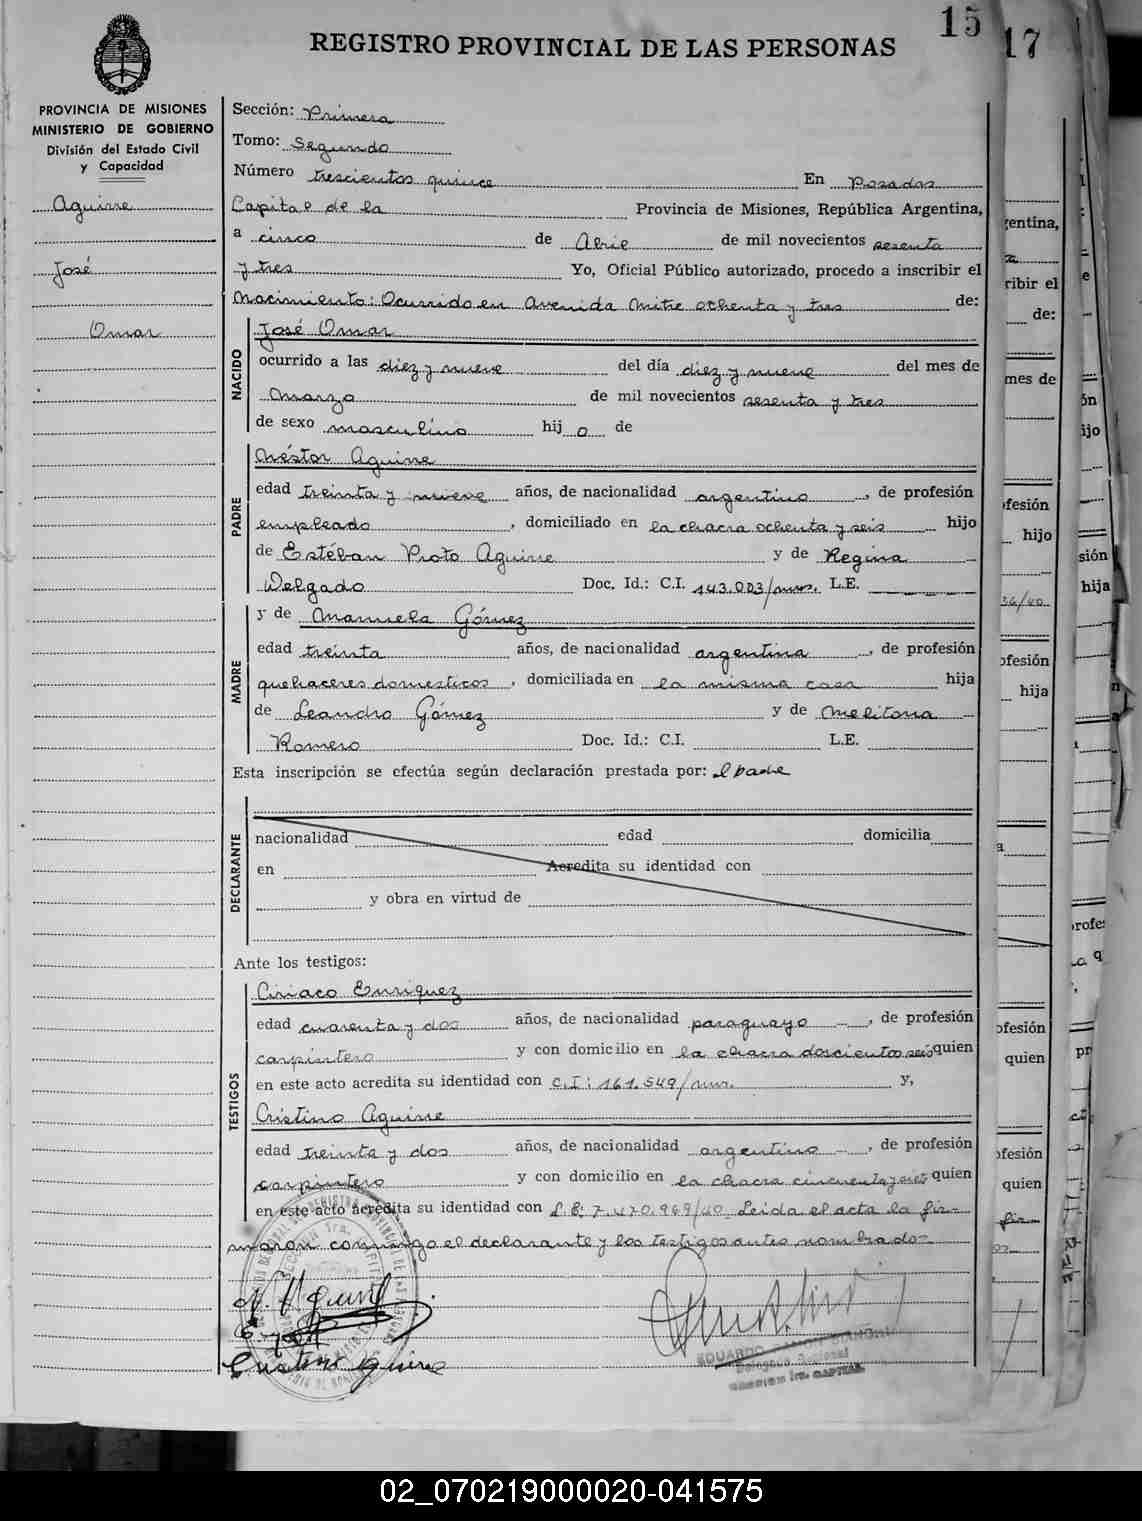 15
17
REGISTRO PROVINCIAL DE LAS PERSONAS
PROVINCIA DE MISIONES
MINISTERIO DE GOBIERNO
División del Estado Civil
y Capacidad
Aguirre
José
Omar
Sección: Primera
Tomo: Segundo
Número trescientos quince En Posadas
Capital de la Provincia de Misiones, República Argentina,
a cinco de Abril de mil novecientos sesenta
y tres Yo, Oficial Público autorizado, procedo a inscribir el
Nacimiento: Ocurrido en Avenida Mitre ochenta y tres de:
NACIDO
José Omar
ocurrido a las diez y nueve del día diez y nueve del mes de
Marzo de mil novecientos sesenta y tres
de sexo masculino hij o de
PADRE
Néstor Aguirre
edad treinta y nueve años, de nacionalidad argentino, de profesión
empleado, domiciliado en la chacra ochenta y seis hijo
de Estéban Proto Aguirre y de Regina
Delgado Doc. Id.: C.I. 143.003/mnes. L.E.
MADRE
y de Manuela Gómez
edad treinta años, de nacionalidad argentina, de profesión
quehaceres domesticos, domiciliada en la misma casa hija
de Leandro Gómez y de Melitona
Romero Doc. Id.: C.I. L.E.
Esta inscripción se efectúa según declaración prestada por: el padre
DECLARANTE
nacionalidad edad domicilia
en Acredita su identidad con
y obra en virtud de
Ante los testigos:
TESTIGOS
Ciriaco Enriquez
edad cuarenta y dos años, de nacionalidad paraguayo, de profesión
carpintero y con domicilio en la chacra doscientos seis quien
en este acto acredita su identidad con C.I: 161.549/mnes. y,
Cristino Aguirre
edad treinta y dos años, de nacionalidad argentino, de profesión
carpintero y con domicilio en la chacra cincuenta y seis quien
en este acto acredita su identidad con L.E: 7.470.969/40 Leida el acta la fir-
maron conmigo el declarante y los testigos antes nombrado-
Cristino Aguirre
EDUARDO
Delegado Seccional
SECCION 1ra. CAPITAL
02_070219000020-041575